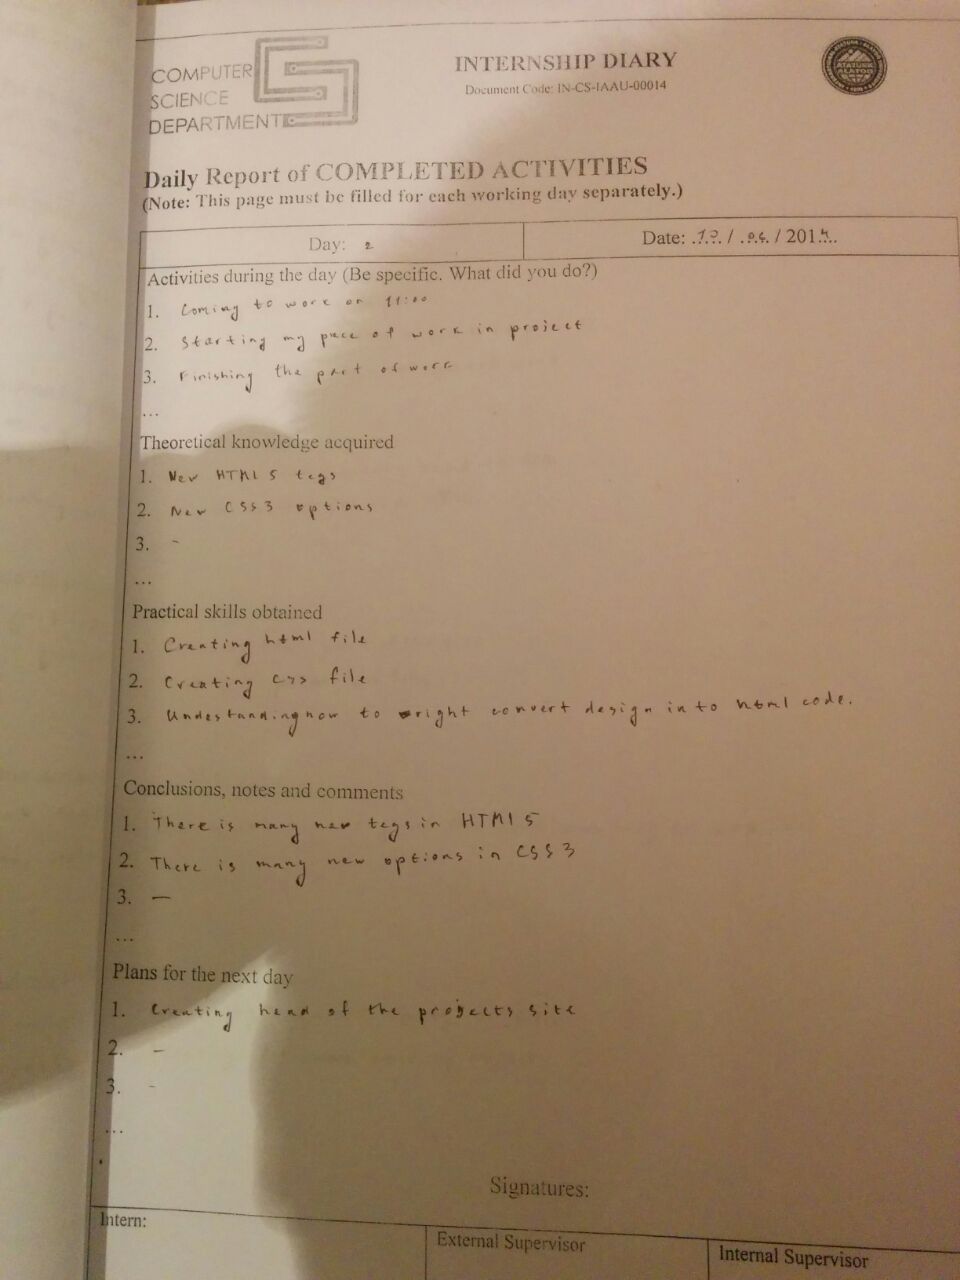 COMPUTER
SCIENCE
DEPARTMENT
INTERNSHIP DIARY
Document Code: IN-CS-IAAU-00014
Daily Report of COMPLETED ACTIVITIES
(Note: This page must be filled for each working day separately.)
Day: 2
Date: / 06 / 201
Activities during the day (Be specific. What did you do?)
1. Coming to work on 11:00
2. Starting my piece of work in project
3. Finishing the part of work
...
Theoretical knowledge acquired
1. New HTML5 tegs
2. New CSS3 options
3. -
...
Practical skills obtained
1. Creating html file
2. Creating css file
3. Undestanding how to right convert design into html code.
...
Conclusions, notes and comments
1. There is many new tegs in HTML5
2. There is many new options in CSS3
3. -
...
Plans for the next day
1. Creating head of the projects site
2. -
3. -
...
Signatures:
Intern:
External Supervisor
Internal Supervisor